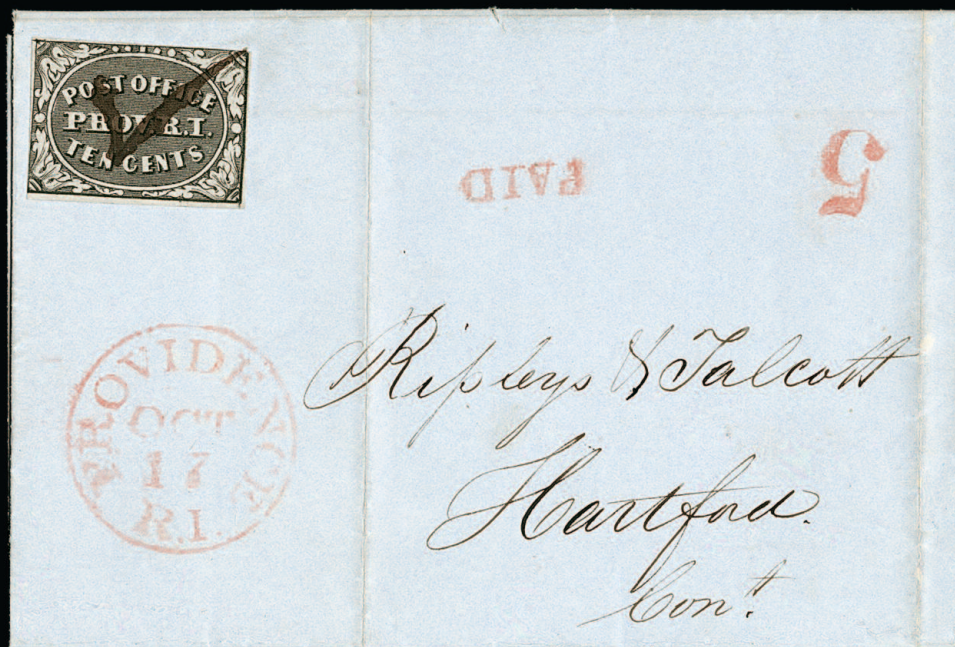 POST OFFICE
PROV. R.I.
TEN CENTS
PAID
5
PROVIDENCE
OCT
17
R.I.
Ripleys & Talcott
Hartford.
Cont.